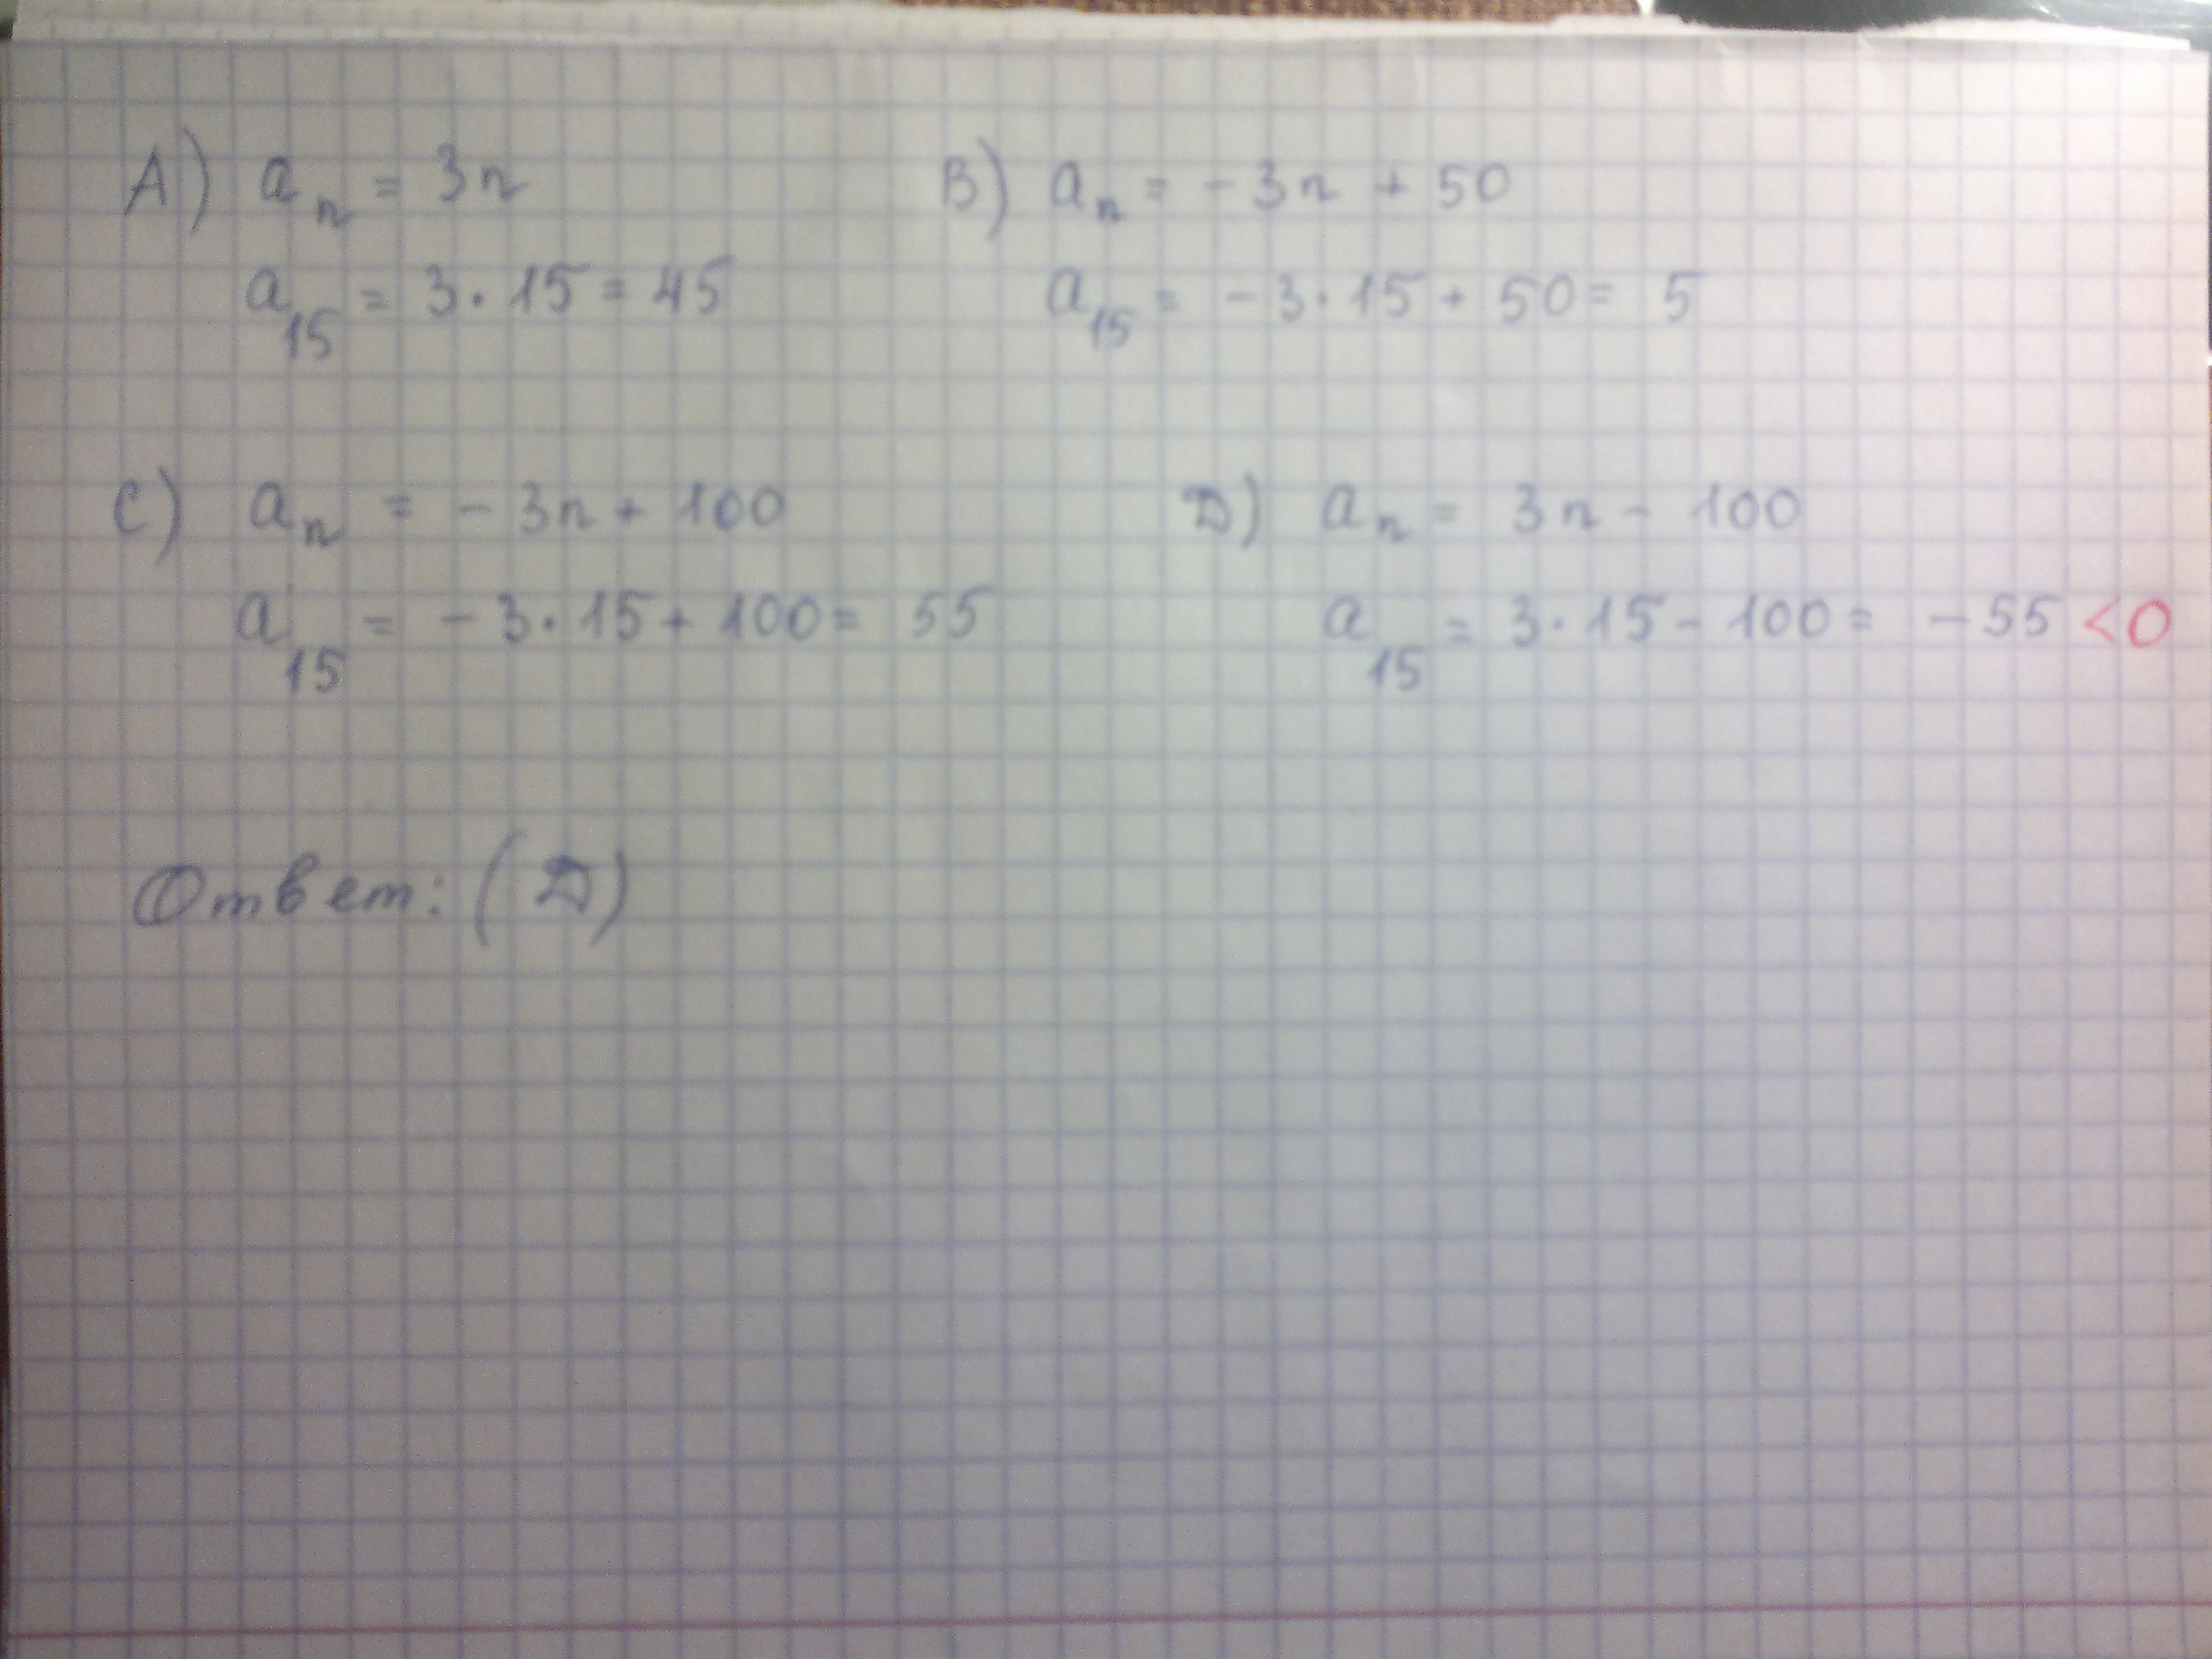 A) aₙ = 3n
a₁₅ = 3·15 = 45
B) aₙ = -3n + 50
a₁₅ = -3·15 + 50 = 5
C) aₙ = -3n + 100
a₁₅ = -3·15 + 100 = 55
D) aₙ = 3n - 100
a₁₅ = 3·15 - 100 = -55 <0
Ответ: (D)